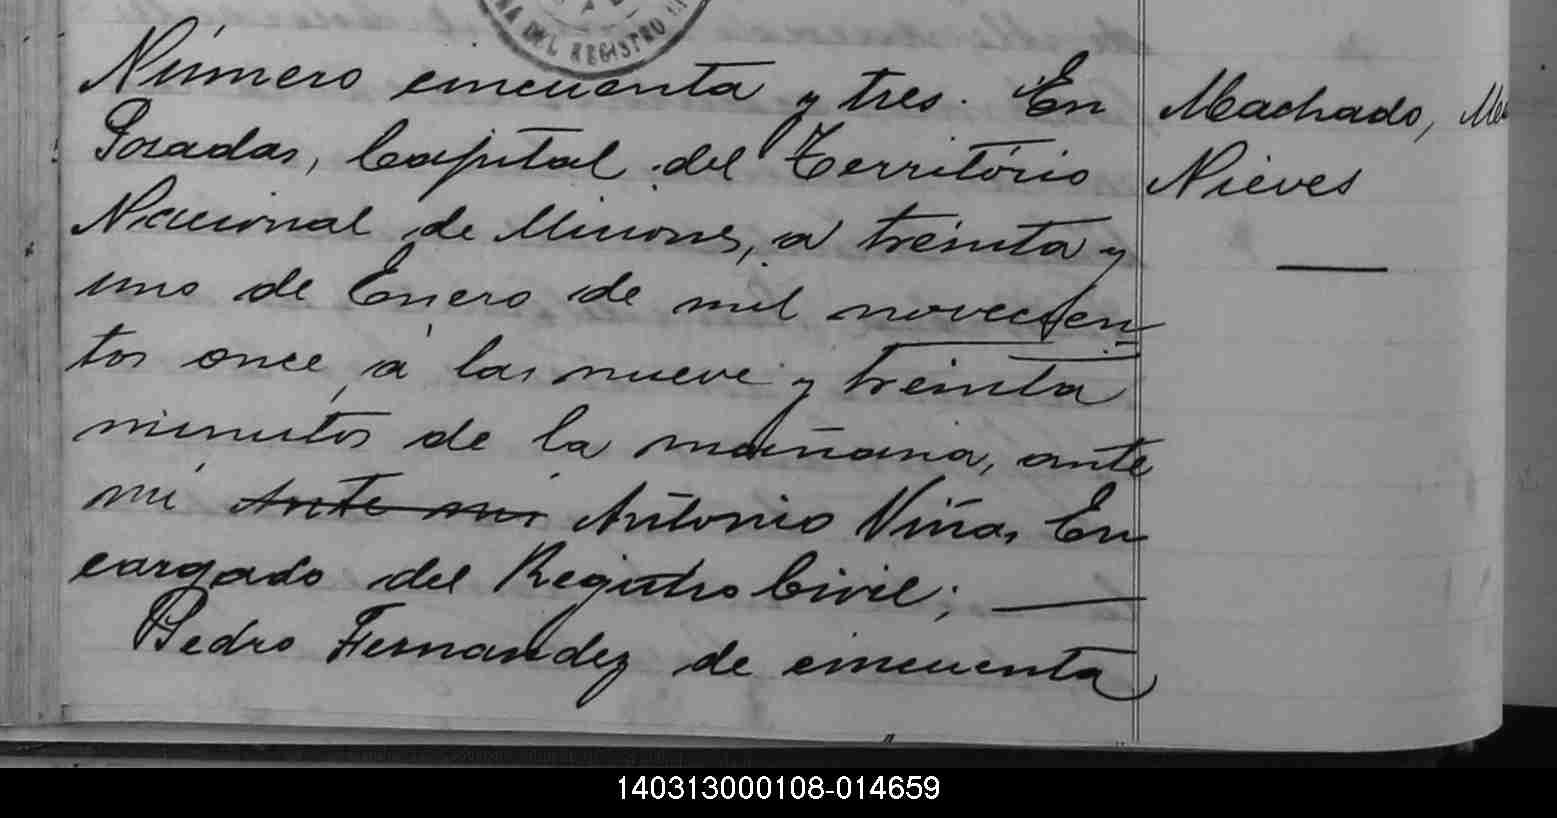 NA DEL REGISTRO
Número cincuenta y tres. En
Posadas, Capital del Territorio
Nacional de Misiones, a treinta y
uno de Enero de mil novecien
tos once, á las nueve y treinta
minutos de la mañana, ante
mi Ante mi Antonio Viñas, En
cargado del Registro Civil;
Pedro Fernandez de cincuenta
Machado,
Nieves
140313000108-014659